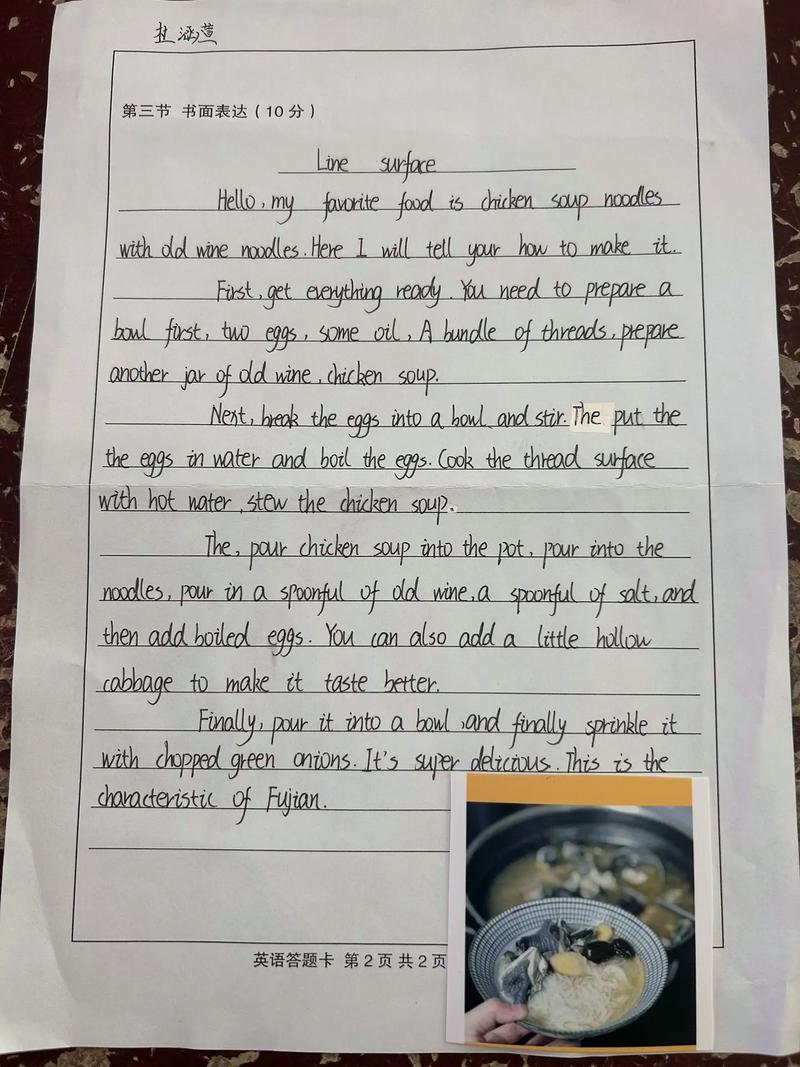 杜涵萱
第三节 书面表达(10分)
Line surface
Hello, my favorite food is chicken soup noodles
with old wine noodles. Here I will tell your how to make it.
First, get everything ready. You need to prepare a
bowl first, two eggs, some oil, A bundle of threads, prepare
another jar of old wine, chicken soup.
Next, break the eggs into a bowl and stir. The put the
the eggs in water and boil the eggs. Cook the thread surface
with hot nater, stew the chicken soup.
The, pour chicken soup into the pot, pour into the
noodles, pour in a spoonful of old wine, a spoonful of salt, and
then add boiled eggs. You can also add a little hollow
cabbage to make it taste better.
Finally, pour it into a bowl, and finally sprinkle it
with chopped green onions. It's super delicious. This is the
characteristic of Fujian.
英语答题卡 第2页 共2页